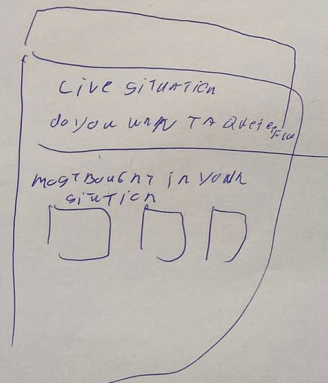 Live situation
do you wan TA
most bought in your
sitution